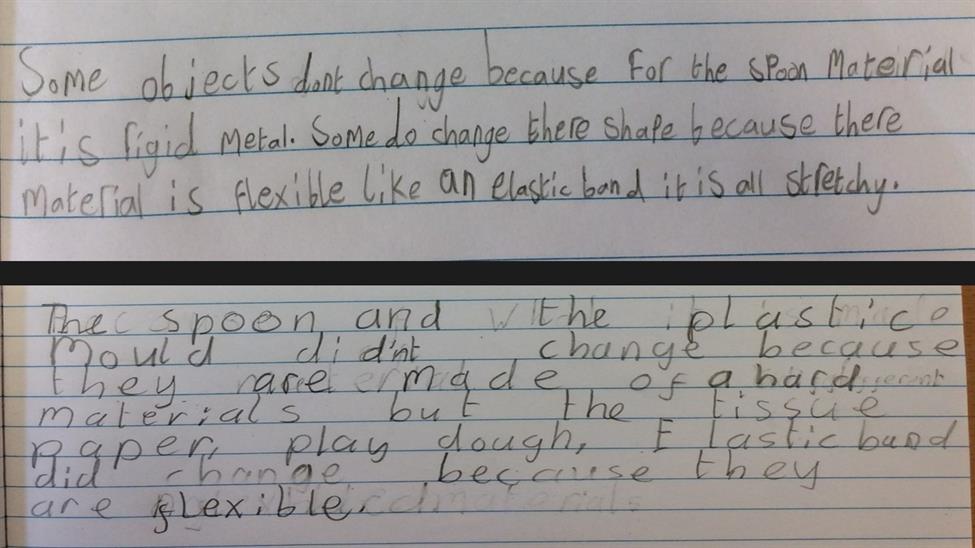 Some objects dont change because for the spoon Material
it's rigid metal. Some do change there shape because there
material is flexible like an elastic band it is all stretchy.
The spoon and the plastic
Mould did'nt change because
they are made of a hard
materials but the tissue
paper, play dough, Elastic band
did change because they
are flexible.